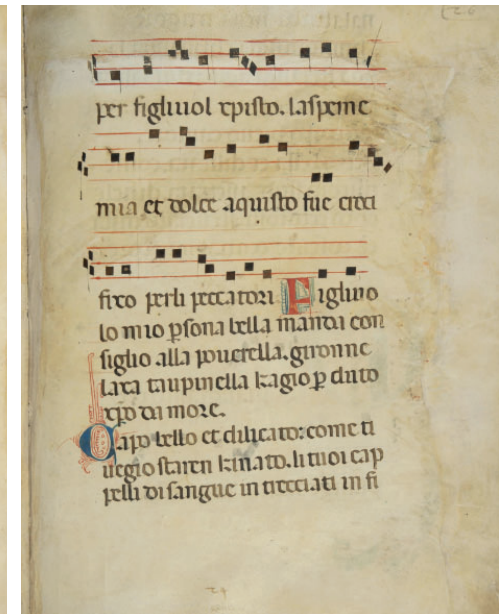 per figliuol xpisto. laspeme
mia et dolce aquisto fue croci
fixo perli peccatori Figliuo
lo mio psona bella manda con
siglio alla pouerella. gironne
lata taupinella kagio p duto
xpo da more.
Capo bello et dilicato: come ti
uegio staren kinato. li tuoi cap
pelli di sangue in trecciati in fi